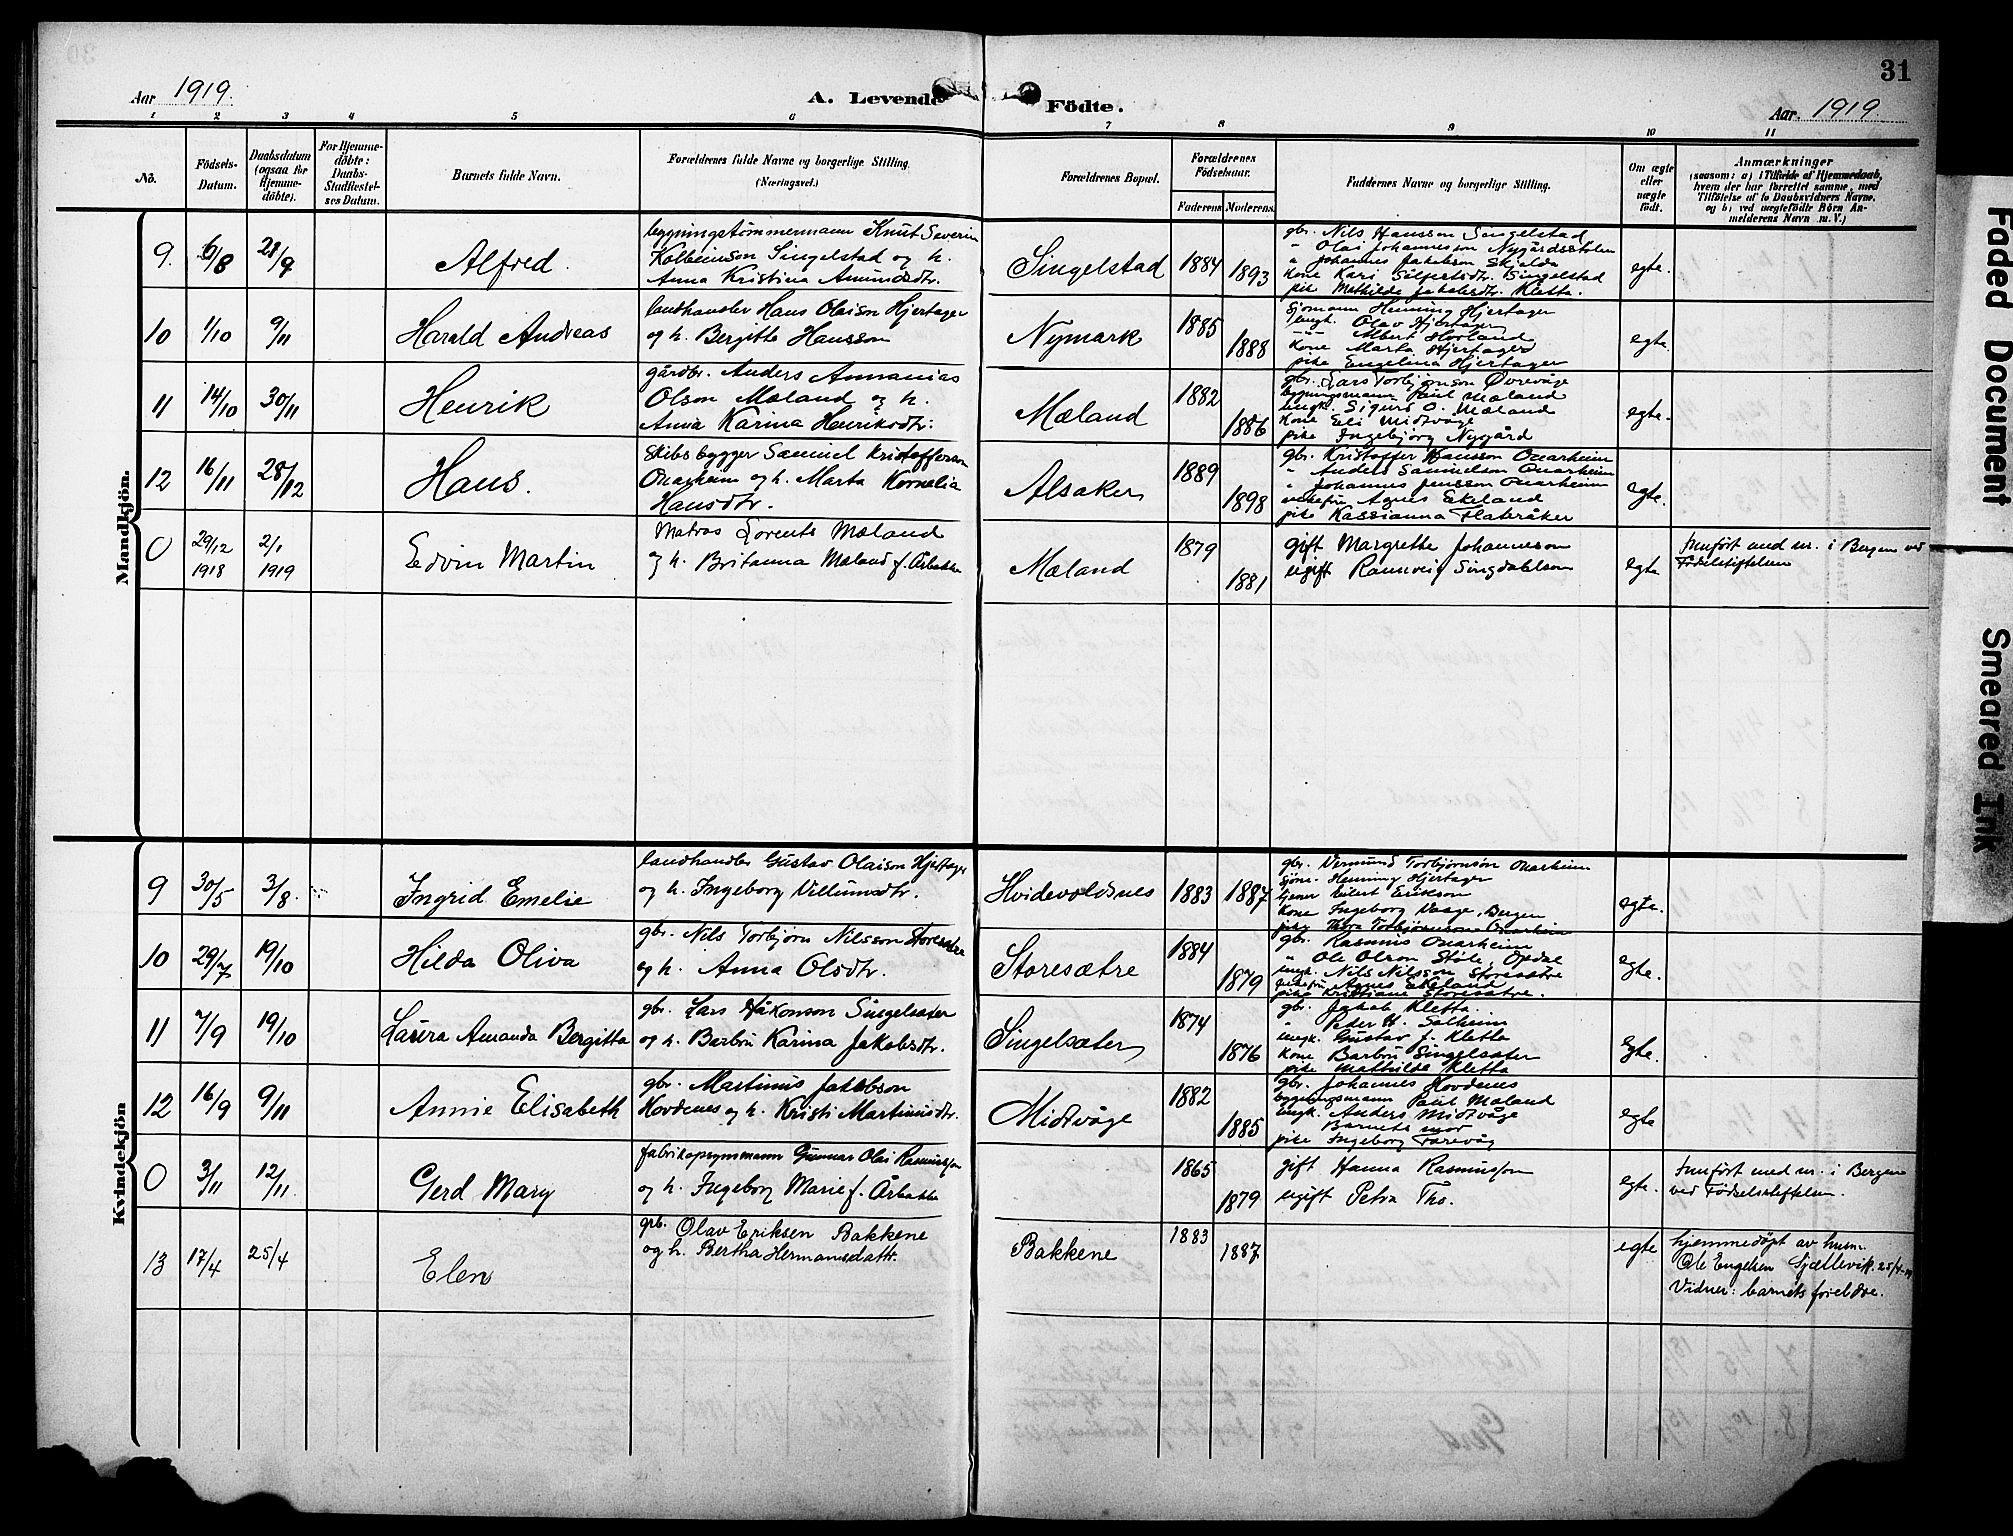 Aar 1919.
A. Levende Födte.
31
Aar 1919.
1 2 3 4 5 6 7 8 9 10 11
No.
Födsels-Datum.
Daabsdatum (ogsaa for Hjemme-döbte).
For Hjemme-döbte: Daabs-Stadfæstel-ses Datum.
Barnets fulde Navn.
Forældrenes fulde Navne og borgerlige Stilling. (Næringsvei.)
Forældrenes Bopæl.
Forældrenes Födselsaar.
Faderens Moderens
Faddernes Navne og borgerlige Stilling.
Om ægte eller uægte födt.
Anmærkninger
(saasom: a) i Tilfælde af Hjemmedaab, hvem der har forrettet samme, med Tilföielse af to Daabsvidners Navne, og b) ved uægtefödte Börn An-melderens Navn m. V.)
Mandkjön.
9. 6/8 28/9 Alfred.
bygningstømmermann Knut Severin
Kolbeinson Singelstad og h.
Anna Kristina Amundsdtr.
Singelstad 1884 1893
gbr. Nils Hansson Singelstad
" Olai Johannesson Nygårdsstølen
" Johannes Jakobson Skjelde
kone Kari Silfertsdtr. Singelstad
pike Mathilde Jakobsdtr. Kletta.
egte.
10 1/10 9/11 Harald Andreas
landhandler Hans Olaison Hjertager
og h. Bergitte Hansson
Nymark 1885 1888
sjømann Henning Hjertager
ungk. Olav Hjertager
Albert Hovland
kone Marta Hjertager
pike Engelina Hjertager
egte.
11 14/10 30/11 Henrik
gårdbr. Anders Annanias
Olson Mæland og h.
Anna Karina Henriksdtr.
Mæland 1882 1886
gbr. Lars Torbjørnson Øvrevåge
bygningsmann Paul Mæland
ungk. Sigurd O. Mæland
kone Eli Midtvåge
pike Ingebjørg Nygård
egte.
12 16/11 28/12 Hans.
Skibsbygger Samuel Kristofferson
Onarheim og h. Marta Kornelia
Hansdtr.
Alsaker 1889 1898
gbr. Kristoffer Hansson Onarheim
" Anders Samuelson Onarheim
" Johannes Jensson Onarheim
Agnes Ekeland
pike Kassianna Flateråker
egte.
0 29/12 1918 2/1 1919 Edvin Martin
Matros Lorents Mæland
og h. Britanna Mæland f. Årbakke
Mæland 1879 1881
gift Margrethe Johanneson
ugift Rannveig Singdahlsen
egte
Innført uned nr. i Bergen ved
Fødselstiftelsen
Kvindekjön
9 30/5 3/8. Ingrid Emelie
landhandler Gustav Olaison Hjertager
og h. Ingeborg Villumsdtr.
Hvidevoldsnes 1883 1887
gbr. Vermund Torbjørnson Onarheim
sjøm. Henning Hjertager
tjener Eilert Erikson
kone Ingeborg Vaage, Bergen
pike Thora Torbjørnson Onarheim
egte.
10 29/7 19/10 Hilda Oliva
gbr. Nils Torbjørn Nilsson Storesætre
og h. Anna Olsdtr.
Storesætre 1884 1879
gbr. Rasmus Onarheim
" Ole Olson Støle, Opdal
ungk. Nils Nilsson Storesætre
Agnes Ekeland
pike Kristiane Storesætre.
egte.
11 7/9 19/10 Laura Amanda Bergitta
gbr. Lars Håkonson Singelsæter
og h. Barbru Karina Jakobsdtr.
Singelsæter 1874 1876
gbr. Jakob Kletta.
" Peder H. Solheim
ungk. Gustav J. Kletta
kone Barbru Singelsæter
pike Mathilde Kletta
egte.
12 16/9 9/11 Annie Elisabeth
gbr. Martinus Jakobson
Hovdenes og h. Kristi Martinusdtr.
Midtvåge 1882 1885
gbr. Johannes Hovdenes
bygningsmann Paul Mæland
ungk. Anders Midtvåge
Barnets mor
pike Ingeborg Tarevåg
egte
0 3/11 12/11. Gerd Mary
Gunnar Olai Rasmussen
og h. Ingeborg Marie f. Årbakke
1865 1879
gift Hanna Rasmussen
ugift Petra Tho.
egte.
Innført med nr. i Bergen
ved Fødselsstiftelsen.
13 17/4 25/4 Elen
grb. Olav Eriksen Bakkene
og h. Bertha Hermansdattr.
Bakkene 1883 1887
egte
hjemmedøpt av husm.
Ole Engelsen Sjællevik. 25/4-19
Vidner: barnets foreldre.
Faded Document
Smeared Ink